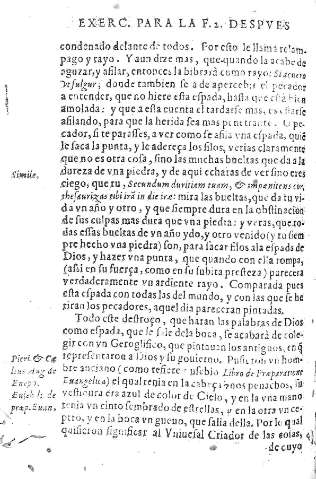 EXERC. PARA LA F. 2. DESPVES
condenado delante de todos. Por esto le llama relam-
pago y rayo. Y aun dize mas, que quando la acabe de
aguzar, y afilar, entonces la bibrarà como rayo: Si acuero
vt fulgur, donde tambien se à de apercebir el pecador
a entender, que no hiere esta espada, hasta que està bien
amolada: y que a esta cuenta el tardarse mas, es estarse
afilando, para que la herida sea mas penetrante. O pe-
cador, si te parasses, a ver como se afila vna espada, quiē
le saca la punta, y le adereça los filos, verias claramente
que no es otra cosa, sino las muchas bueltas que da a la
dureza de vna piedra, y de aqui echaras de ver sino eres
Simile,
ciego, que tu, Secundum duritiam tuam, & impænitens cor,
thesaurizas tibi irā in die iræ: mira las bueltas, que da tu vi-
da vn año y otro, y que siempre dura en la obstinacion
de sus culpas mas dura que vna piedra: y veras, que to-
das essas bueltas de vn año ydo, y otro venido (y tu siem
pre hecho vna piedra) son, para sacar filos a la espada de
Dios, y hazer vna punta, que quando con ella rompa,
(assi en su fuerça, como en su subita presteza) parecera
verdaderamente vn ardiente rayo. Comparada pues
esta espada con todas las del mundo, y con las que se hi
ziran los pecadores, aquel dia pareceran pintadas.
Todo este destroço, que haran las palabras de Dios
como espada, que le sale de la boca, se acabarà de cole-
gir con vn Geroglifico, que pintauan los antiguos, en q̄
Pieri. & Cæ
representaron a Dios y su gouierno. Pusieron vn hom-
lius Aug. de
bre anciano (como refiere Eusebio Libro de Præparatione
Euse.
Euangelica) el qual tenia en la cabeça vnos penachos, su
Euseb. li. de
vestidura era azul de color de Cielo, y en la vna mano
præp. Euan.
tenia vn cinto sembrado de estrellas, y en la otra vn ce-
ptro, y en la boca vn gueuo, que salia della. Por lo qual
quisieron significar al Vniuersal Criador de las cosas,
de cuyo